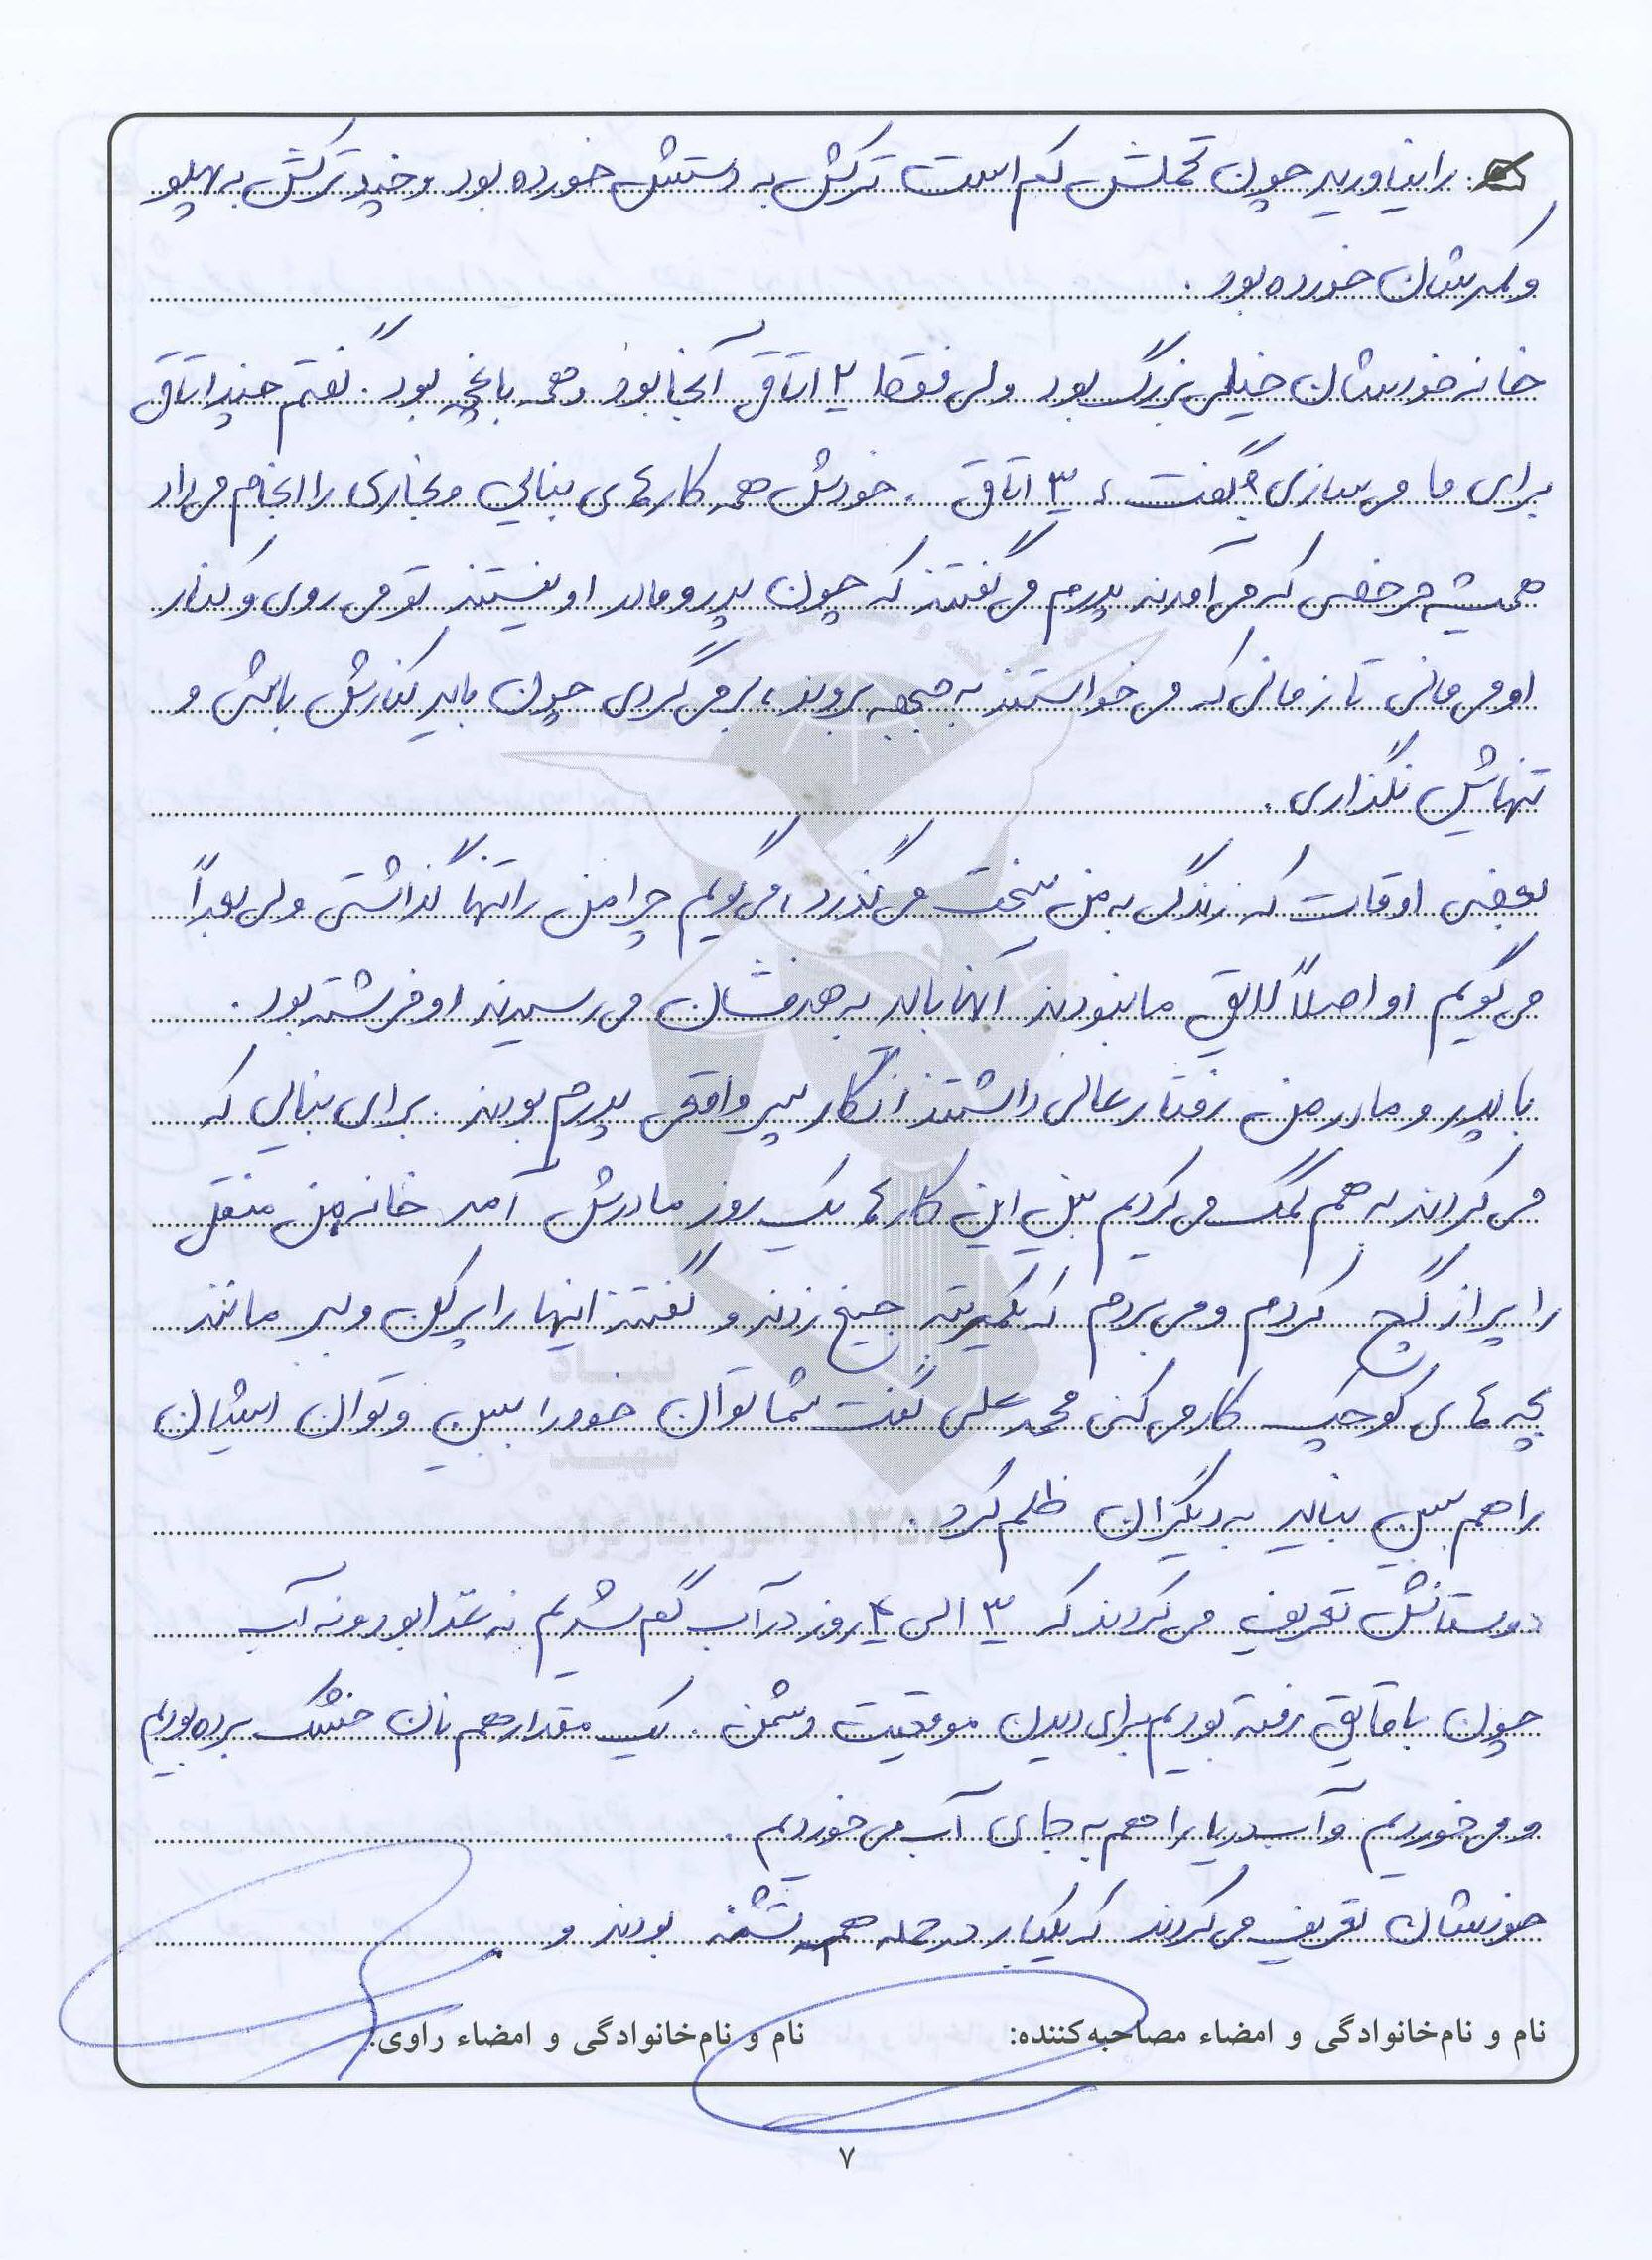 را نیاورید چون تحملش کم است ترکش به دستش خورده بود و چند ترکش به پهلو
و کمرشان خورده بود .
خانه خودشان خیلی بزرگ بود ولی فقط ۲ اتاق آنجا بود و همه باغچه بود . گفتم چند اتاق
برای ما می سازی ؟ گفت ، ۳ اتاق . خودش همه کارهای بنایی و نجاری را انجام می داد
همیشه مرخصی که می آمدند پدرم می گفتند که چون پدر و مادر او نیستند تو می روی و کنار
او می مانی تا زمانی که می خواستند به جبهه بروند ، بر می گردی چون باید کنارش باشی و
تنهایش نگذاری .
بعضی اوقات که زندگی به من سخت می گذرد ، می گویم چرا من را تنها گذاشتی ولی بعداً
می گویم او اصلاً لایق ما نبودند آنها باید به هدفشان می رسیدند او فرشته بود .
با پدر و مادر من رفتار عالی داشتند انگار پسر واقعی پدرم بودند . برای بنایی که
می کردند به هم کمک می کردیم بین این کارها یک روز مادرش آمد خانه من منقل
را پر از گچ کردم و می بردم که یکمرتبه جیغ زدند و گفتند اینها را پر کن و ببر مانند
بچه های کوچک کار می کنی محمد علی گفت شما توان خود را ببین و توان ایشان
را هم ببین نباید به دیگران ظلم کرد .
دوستانش تعریف می کردند که ۳ الی ۴ روز در آب گم شدیم نه غذا بود و نه آب
چون با قایق رفته بودیم برای دیدن موقعیت دشمن . یک مقدار هم نان خشک برده بودیم
و می خوردیم و آب دریا را هم به جای آب می خوردیم .
خودشان تعریف می کردند که یکبار در حمله همه تشنه بودند و
نام و نام‌خانوادگی و امضاء مصاحبه‌کننده: نام و نام‌خانوادگی و امضاء راوی:
۷